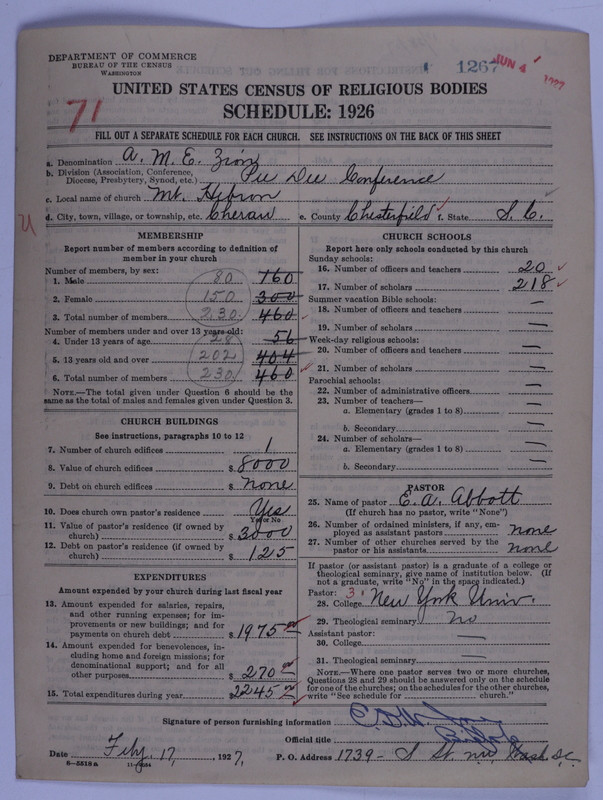 DEPARTMENT OF COMMERCE
BUREAU OF THE CENSUS
WASHINGTON
1267
JUN 4
71
UNITED STATES CENSUS OF RELIGIOUS BODIES
SCHEDULE: 1926
FILL OUT A SEPARATE SCHEDULE FOR EACH CHURCH. SEE INSTRUCTIONS ON THE BACK OF THIS SHEET
a. Denomination A. M. E. Zion
b. Division (Association, Conference, Diocese, Presbytery, Synod, etc.) Pee Dee Conference
c. Local name of church Mt. Hebron
d. City, town, village, or township, etc. Cheraw e. County Chesterfield f. State S. C.
MEMBERSHIP
Report number of members according to definition of
member in your church
Number of members, by sex:
1. Male 80 160
2. Female 150 300
3. Total number of members 230 460
Number of members under and over 13 years old:
4. Under 13 years of age 28 56
5. 13 years old and over 202 404
6. Total number of members 230 460
NOTE.—The total given under Question 6 should be the
same as the total of males and females given under Question 3.
CHURCH BUILDINGS
See instructions, paragraphs 10 to 12
7. Number of church edifices 1
8. Value of church edifices $ 8000
9. Debt on church edifices $ None
10. Does church own pastor's residence Yes
Yes or No
11. Value of pastor's residence (if owned by
church) $ 3000
12. Debt on pastor's residence (if owned by
church) $ 125
EXPENDITURES
Amount expended by your church during last fiscal year
13. Amount expended for salaries, repairs,
and other running expenses; for im-
provements or new buildings; and for
payments on church debt $ 1975
14. Amount expended for benevolences, in-
cluding home and foreign missions; for
denominational support; and for all
other purposes $ 270
15. Total expenditures during year $ 2245
CHURCH SCHOOLS
Report here only schools conducted by this church
Sunday schools:
16. Number of officers and teachers 20
17. Number of scholars 218
Summer vacation Bible schools:
18. Number of officers and teachers —
19. Number of scholars —
Week-day religious schools:
20. Number of officers and teachers —
21. Number of scholars —
Parochial schools:
22. Number of administrative officers —
23. Number of teachers—
a. Elementary (grades 1 to 8) —
b. Secondary —
24. Number of scholars—
a. Elementary (grades 1 to 8) —
b. Secondary —
PASTOR
25. Name of pastor E. A. Abbott
(If church has no pastor, write "None")
26. Number of ordained ministers, if any, em-
ployed as assistant pastors none
27. Number of other churches served by the
pastor or his assistants none
If pastor (or assistant pastor) is a graduate of a college or
theological seminary, give name of institution below. (If
not a graduate, write "No" in the space indicated.)
Pastor: 3
28. College New York Univ.
29. Theological seminary No
Assistant pastor:
30. College —
31. Theological seminary —
NOTE.—Where one pastor serves two or more churches,
Questions 28 and 29 should be answered only on the schedule
for one of the churches; on the schedules for the other churches,
write "See schedule for church."
Signature of person furnishing information
Official title
Date Feby. 17, 1927. P. O. Address 1739 - S St. nw, Wash. D.C.
8-5518a